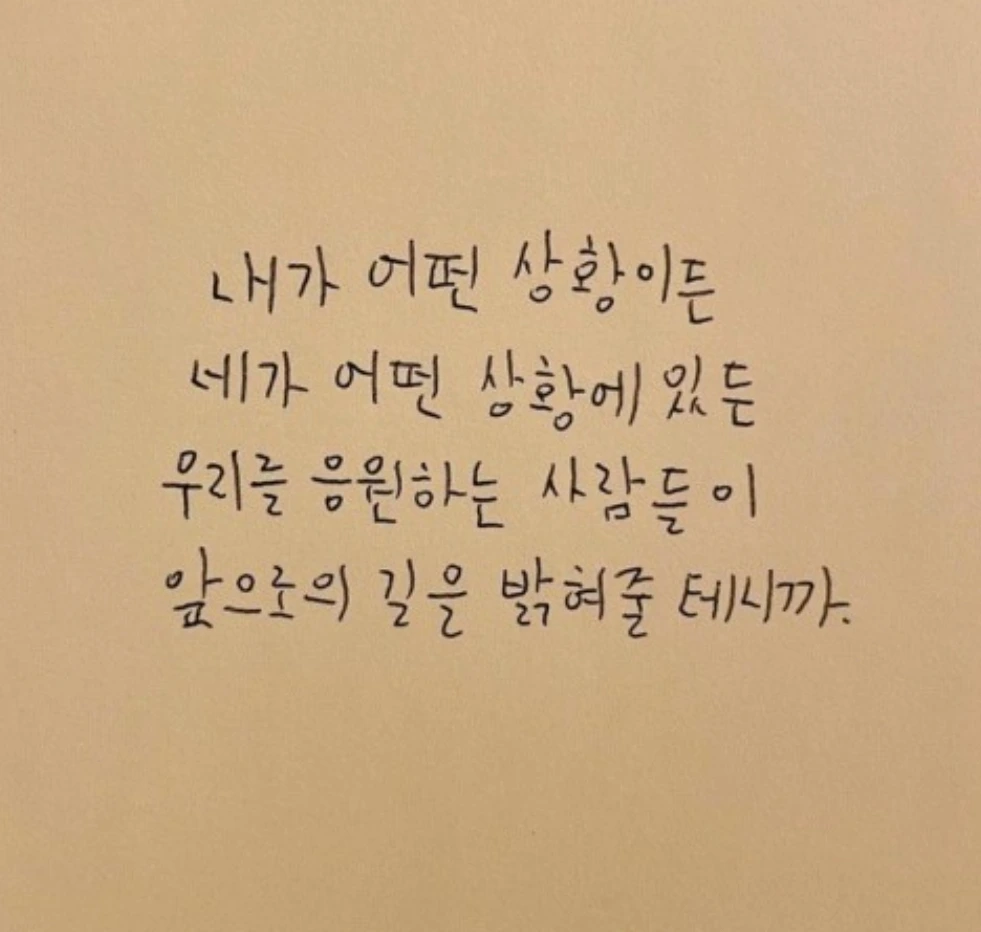 내가 어떤 상황이든
네가 어떤 상황에 있든
우리를 응원하는 사람들이
앞으로의 길을 밝혀줄 테니까.